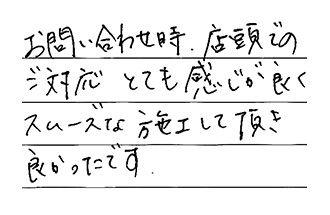 お問い合わせ時、店頭での
ご対応 とても感じが良く
スムーズな施工して頂き
良かったです.